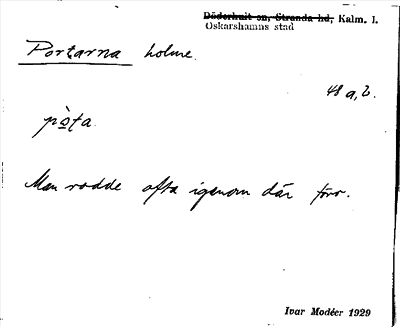 Döderhult sn, Stranda hd, Kalm. l.
Oskarshamns stad
Portarna holme.
48 a, b.
pò̲ta.
Man rodde ofta igenom där förr.
Ivar Modéer 1929